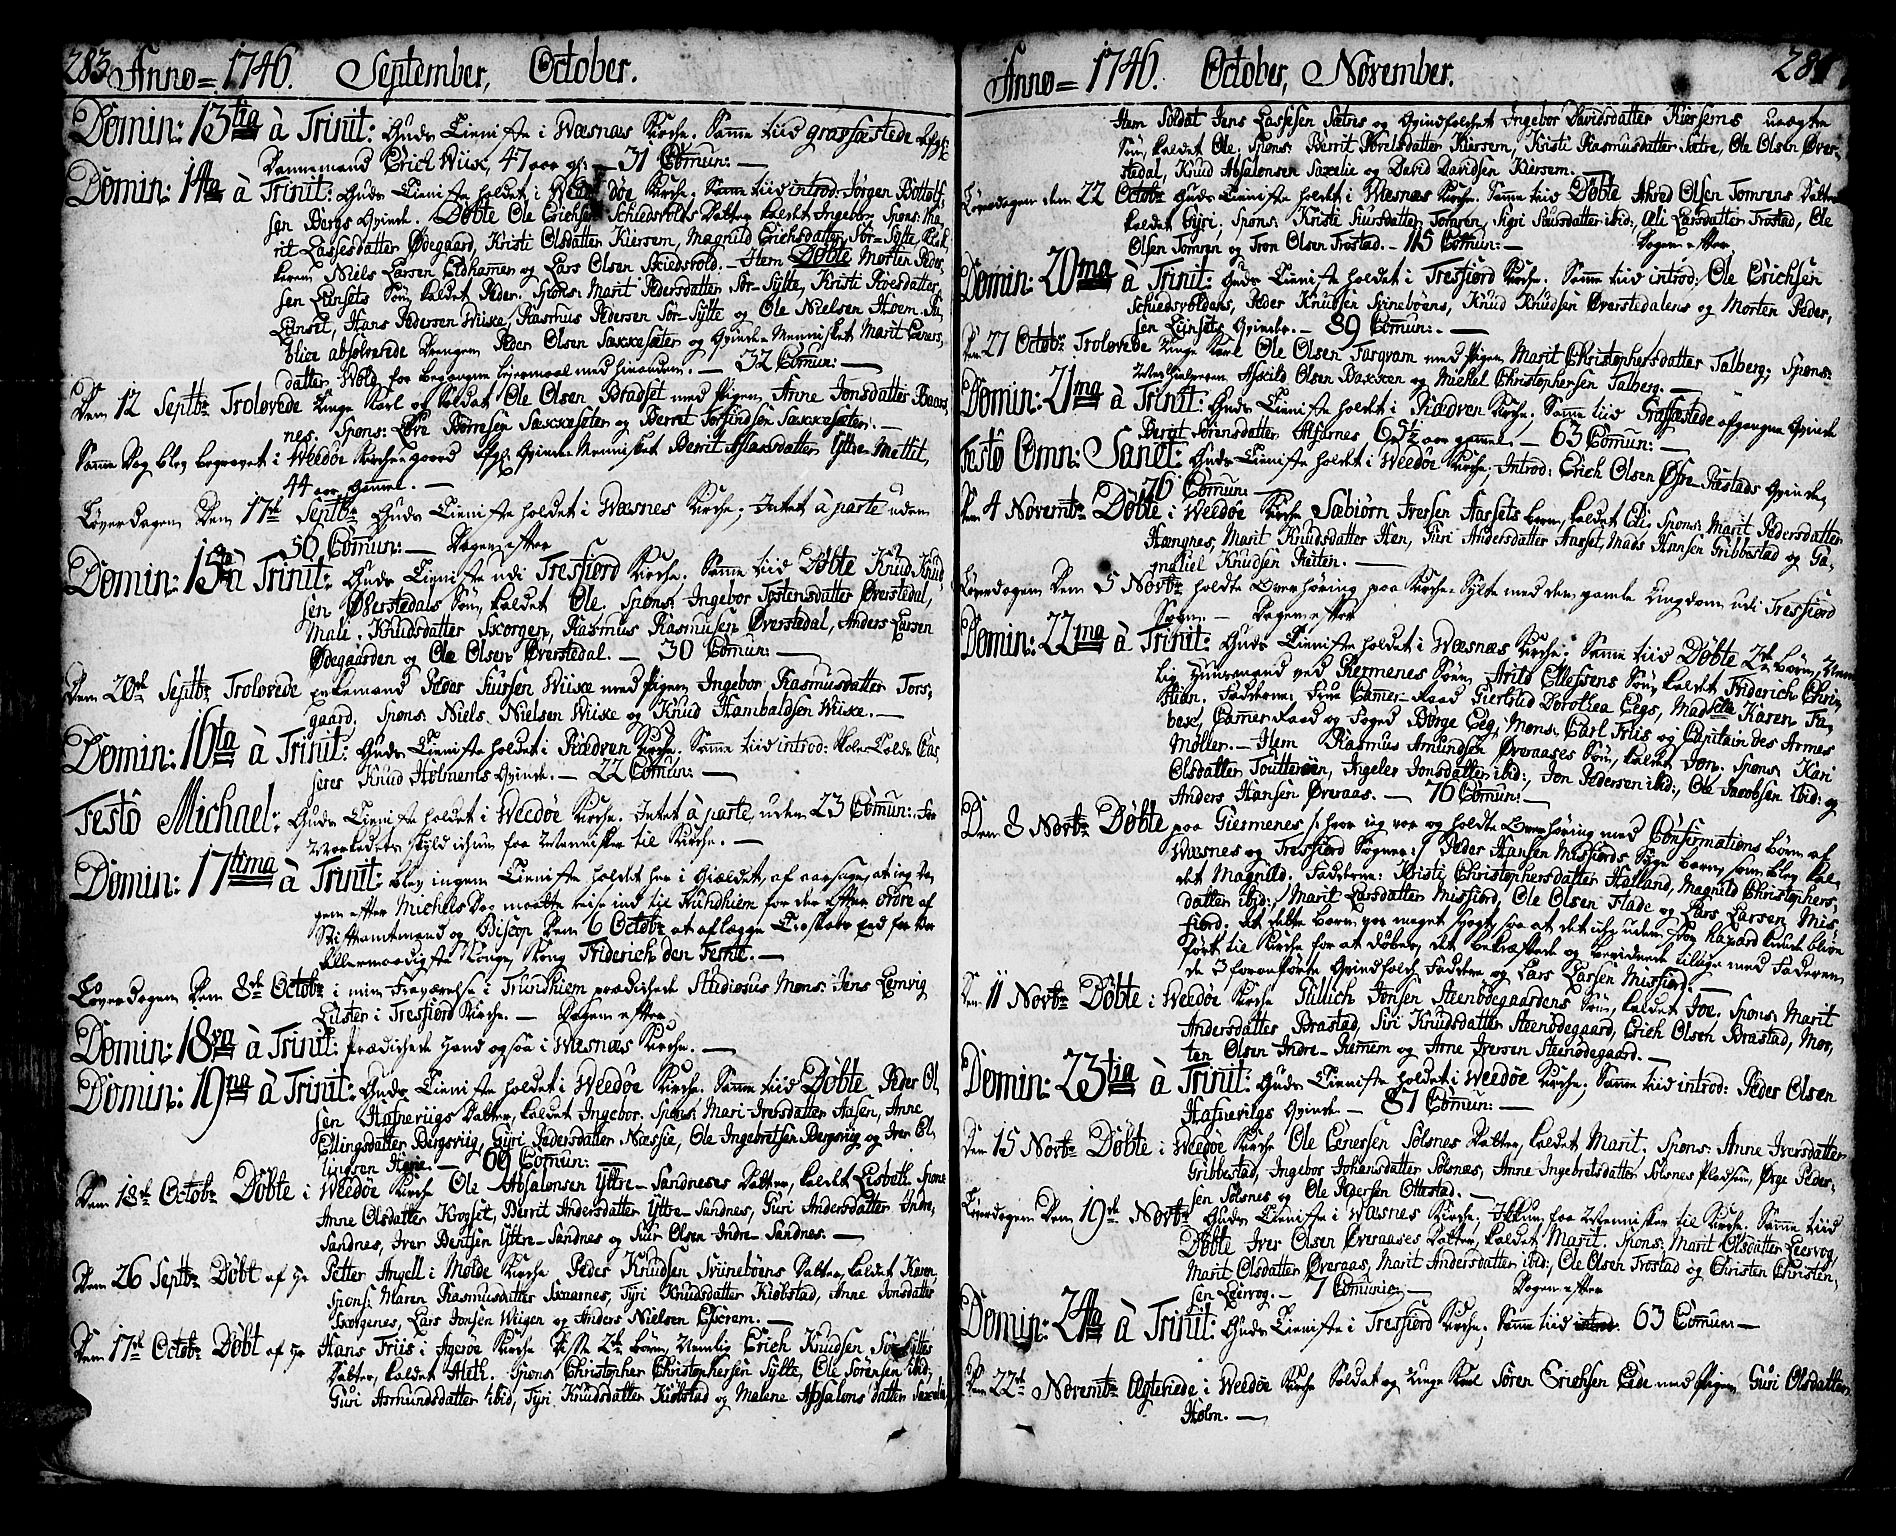 283 Anno = 1746. September, October.
Domin: 13tia à Trinit: Guds Tieniste i Wæsnæs Kirche. Samme tiid grasfæstede
Dannemand Erich Wiise, 47 aar gl: — 31 Comun: —
Domin: 14ta à Trinit: Guds Tieniste holdet i Weedøe Kirche. Samme tiid introd: Jørgen Bottolf-
sen Bergs Qvinde. Døbte Ole Erichsen Schiedsvolds Datter kaldet Ingebor. Spons: Ma-
rit Lassesdatter Ødegaard, Kristi Olsdatter Kiersem, Magnild Erichsdatter Sør-Sylte,
Niels Larsen Eldhammer og Lars Olsen Skiedsvold. — Item Døbte Morten Peder-
sen Lunsets Søn, kaldet Peder. Spons: Marit Pedersdatter Sør-Sylte, Kristi
Lunset, Hans Pedersen Wiise, Rasmus Pedersen Sør-Sylte og Ole Nielsen Hoem. Pu-
blice absolverede Drengen Peder Olsen Saxxesæter og Qvinde-Mennisket Marit Eners-
datter Wold for begangne leiermaal med hinanden. — 32 Comun: —
Den 12 Septbr Trolovede Unge Karl og Soldat Ole Olsen Bradset med Pigen Anne Jonsdatter Baars-
nes. Spons: Børresen Saxxesæter og Berret Torfindsen Saxxesæter. —
Samme Dag blev begravet i Weedøe Kirche-gaard Qvinde-Mennisket Berrit datter Yttre-Mettit,
44 aar Gammel. —
Løverdagen Den 17de Septbr Guds Tieniste holdet i Wæsnes Kirche; Intet à parte uden
50 Comun: — Dagen efter
Domin: 15ta à Trinit: Guds Tieniste udi Tresfiord Kirche. Samme tiid Døbte Knud Knud-
sen Øverstedals Søn, kaldet Ole. Spons: Ingebor Tostensdatter Øverstedal,
Mali Knudsdatter Skorgen, Rasmus Rasmusen Øverstedal, Anders Larsen
Ødegaarden og Ole Olsen Øverstedal. — 30 Comun: —
Den 20de Septbr Trolovede enkemand Peder Siursen Wiise med Pigen Ingebor Rasmusdatter Tors-
gaard. Spons: Niels Nielsen Wiise og Knud Hambaldsen Wiise. —
Domin: 16ta à Trinit: Guds Tieniste holdet i Rædven Kirche. Samme tiid introd:
Knud Holmems Qvinde. — 22 Comun: —
Festô Michael: Guds Tieniste holdet i Weedøe Kirche. Intet à parte, uden 23 Comun: For
Markedets skyld ikun faa Mennisker til Kirche. —
Domin: 17tima à Trinit: blev ingen Tieniste holdet her i Giældet, af aarsage, at ieg Da-
gen efter Michels Dag maatte reise ind til Trundhiem for der efter ordre af
Stiftamtmand og Biscop Den 6 Octobr at aflægge Troskabs Eed for
Allernaadigste Konge Kong Friderich den Femte. —
Løverdagen Den 8de Octobr i min Fraværelse i Trundhiem prædichede Studiosus Mons: Jens Lemvig
Lilster i Tresfiord Kirche. — Dagen efter
Domin: 18va à Trinit: Prædichede Hand ogsaa i Wæsnæs Kirche. —
Domin: 19na à Trinit: Guds Tieniste holdet i Weedøe Kirche. Samme tiid Døbte Peder Ol-
sen Hafneviigs Datter, kaldet Ingebor. Spons: Mari Iversdatter Aasen, Anne
Ellingsdatter Bergsviig, Gyri Pedersdatter Næssie, Ole Ingebretsen Bergsviig og Iver El-
lingsen — 69 Comun: —
Den 18de Octobr Døbte i Weedøe Kirche Ole Absalonsen Yttre-Sandneses Datter, kaldet Lisbeth. Spons:
Anne Olsdatter Krogset, Berrit Andersdatter Yttre-Sandnes, Guri Andersdatter Indre-
Sandnes, Iver Bentsen Yttre-Sandnes og Siur Olsen Indre-Sandnes. —
Den 26 Septbr Døbt af Hr Petter Angell i Molde Kirche Peder Knudsen Svinebøens Datter, kaldet Karen.
Spons: Maren Rasmusdatter Skaarnes, Tyri Knudsdatter Kiøbstad, Anne Jonsdatter
Skorgenes, Lars Jonsen Wiigen og Anders Nielsen Eskrem. —
Den 17de Octobr Døbt af Hr Hans Friis i Agerøe Kirche Disse 2de Børn, Nemlig Erich Knudsen Syltes
Datter, kaldet Aleth. Spons: Christopher Christophersen Sylte, Ole Sørensen ibid,
Guri Asmundsdatter ibid, Tyri Knudsdatter Kiøbstad og Malene Absalons datter Saxelie,
Anno = 1746. October, November.
Item Soldat Jens Lassesen Sætres og Qvindfolchet Ingebor Davidsdatter Kiersems uægte
Søn, kaldet Ole. Spons: Berrit Torelsdatter Kiersem, Kristi Rasmusdatter Sætre, Ole Olsen Øver-
stedal, Knud Absalonsen Saxelie og David Davidsen Kiersem.
Løverdagen den 22 Octobr Guds Tieniste holdt i Wæsnæs Kirche. Samme tiid Døbte Olsen Tomrens Datter
kaldet Gyri. Spons: Kristi Siursdatter Tomren, Sigri Siursdatter ibid:, Ali Larsdatter Trostad, Ole
Olsen Tomren og Tron Olsen Trostad. — 115 Comun: — Dagen efter
Domin: 20ma à Trinit: Guds Tieniste holdet i Tresfiord Kirche. Samme tiid introd: Ole Erichsen
Schiedsvoldens, Peder Knudsen Svinebøens, Knud Knudsen Øverstedalens og Morten Peder-
sen Lunsets Qvinder. — 89 Comun: —
Den 27 Octobr Trolovede Unge Karl Ole Olsen Torgvam med Pigen Marit Christophersdatter Talberg; Spons:
Medhielperen Askild Olsen Baxxen og Michel Christophersen Talberg. —
Domin: 21ma à Trinit: Guds Tieniste holdt i Rædven Kirche. Samme tiid Grasfæstede afgangne Qvinde
Beret Sørensdatter Alfarnes, 65½ aar gammel. — 63 Comun: —
Festô Omn: Sanct: Guds Tieniste holdet i Weedøe Kirche; Introd: Erich Olsen Øvre-Ræstads Qvinde,
76 Comun: —
Den 4 Novembr Døbte i Weedøe Kirche Sæbiørn Iversen Aassets barn, kaldet Eli. Spons: Marit Pedersdatter
Hængnes, Marit Knudsdatter Hen, Guri Andersdatter Aasset, Mads Hansen Gribbestad og Ga-
maliel Knudsen Reiten. —
Løverdagen Den 5 Novbr holdte Overhøring paa Kirche-Sylte med den gamle Ungdom udi Tresfiord
Sogn. — Dagen efter
Domin: 22ma à Trinit: Guds Tieniste holdet i Wæsnæs Kirche. Samme tiid Døbte 2de børn, Nem-
lig Huusmand ved Giermenes Søren Arild Ellefsens Søn, kaldet Friderich Chri-
stian. Fadderne: Frue Camer-Raad Giertrud Dorothea Eegs, Madselle Karen Fa-
bese, Camer-Raad og Foged Børge Eeg, Mons: Carl Friis og Capitain des Armes
Møller. — Item Rasmus Amundsen Øveraases Søn, kaldet Jon. Spons: Kari
Olsdatter Toutterøen, Ingeler Jonsdatter ibid:, Jon Pedersen ibid:, Ole Jacobsen ibid: og
Anders Hansen Øveraas. — 76 Comun: —
Den 8 Novbr Døbte paa Giermenes /: hvor ieg var og holdte Overhøring med Confirmations Børn af
Wæsnes og Tresfiord Sogner :/ Peder Hansen Misfiords Syge barn, som blev kal-
det Magnild. Fadderne: Kristi Christophersdatter Halland, Magnild Christophers-
datter ibid:, Marit Larsdatter Misfiord, Ole Olsen Flade og Lars Larsen Mis-
fiord. At dette barn var meget svagt, saa at det iche uden stor hazard kunde blive
ført til Kirche for at døbes, det bekræftede og bevidnede tillige med Faderen
de 3 foranførte Qvindfolch Faddere og Lars Larsen Missfiord. —
Den 11 Novbr Døbte i Weedøe Kirche Gullich Jonsen Steenødegaardens Søn, kaldet Joe. Spons: Marit
Andersdatter Brastad, Siri Knudsdatter Steenødegaard, Erich Olsen Brastad, Mor-
ten Olsen Indre-Remem og Arne Iversen Steenødegaard. —
Domin: 23tia à Trinit: Guds Tieniste holdet i Weedøe Kirche; Samme tiid introd: Peder Olsen
Hafneviigs Qvinde. — 87 Comun: —
Den 15 Novbr Døbte i Weedøe Kirche Ole Enersen Sølsnes Datter, kaldet Marit. Spons: Anne Iversdatter
Gribbestad, Ingebor Johansdatter Sølsnæs, Anne Ingebretsdatter Sølsnes Pladsen, Ørge Peder-
sen Sølsnes og Ole Pedersen Ottestad. —
Løverdagen Den 19de Novbr Guds Tieniste i Wæsnes Kirche; Ikkun faa Mennisker til Kirche. Samme tiid
Døbte Iver Olsen Øveraases Datter, kaldet Marit. Spons: Marit Olsdatter Leervog,
Marit Olsdatter Øveraas, Marit Andersdatter ibid:, Ole Olsen Trostad og Christen Christen-
sen Leervog. — 7 Comunic: — Dagen efter
Domin: 24ta à Trinit: Guds Tieniste i Tresfiord Kirche. Samme tiid 63 Comun: —
Den 22de Novembr Ægteviede i Weedøe Kirche Soldat og Unge Karl Søren Erichsen Eide med Pigen Guri Olsdatter
Holm. —